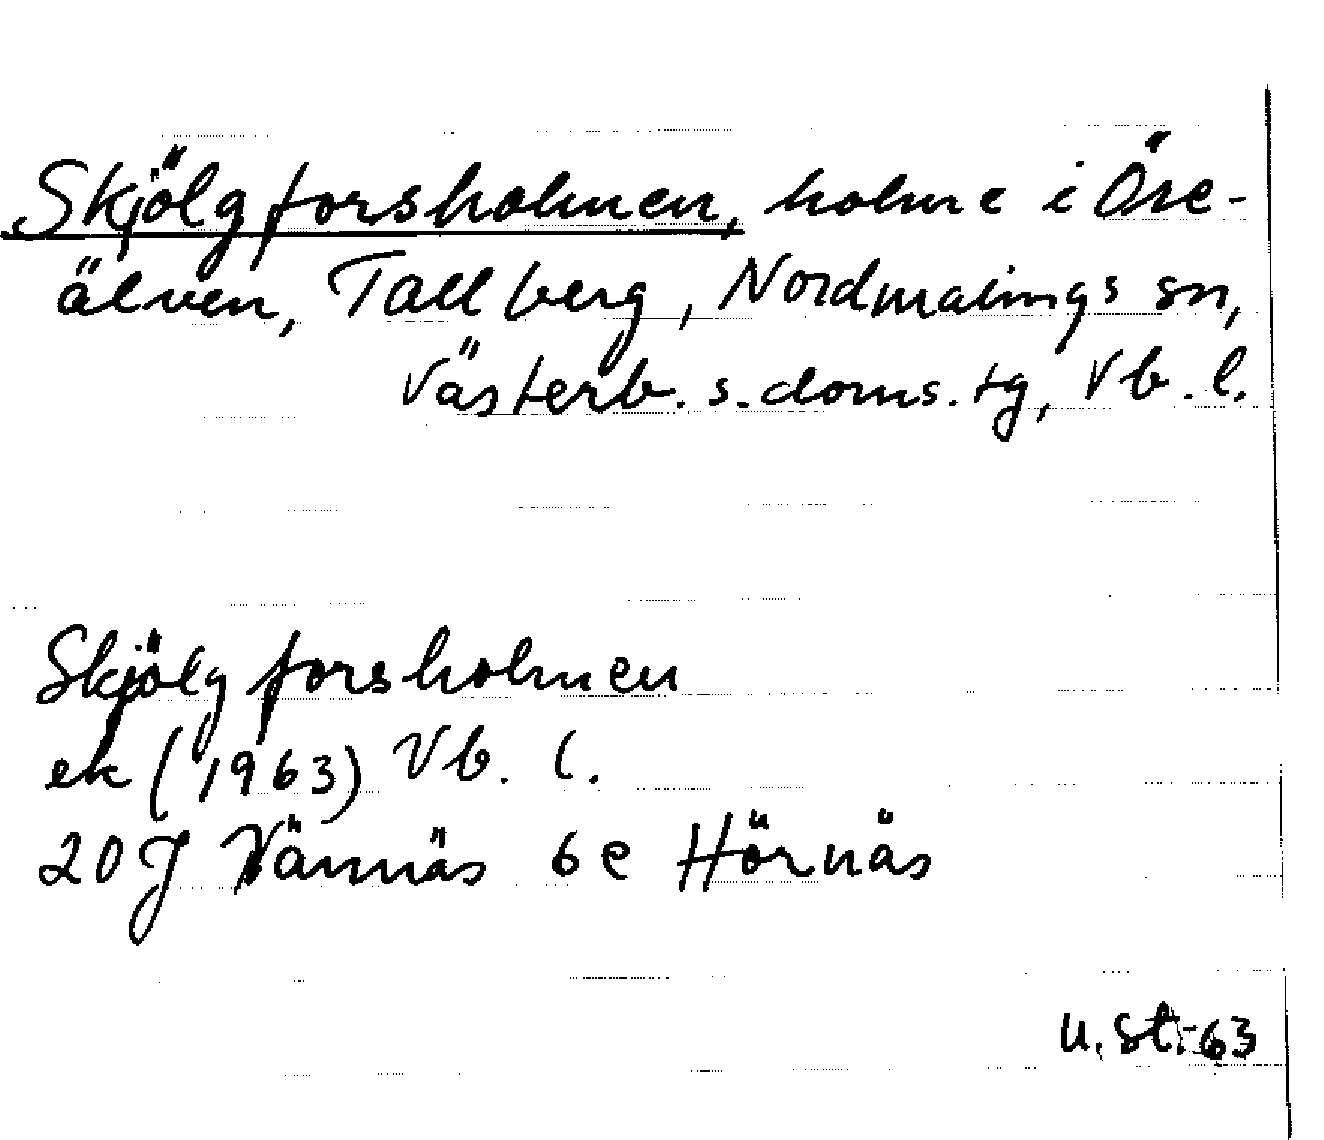 Skjölgforsholmen, holme i Öre-
älven, Tallberg, Nordmalings sn,
Västerb. s. doms. tg, Vb. l.
Skjölgforsholmen
ek (1963) Vb. l.
20J Vännäs 6e Hörnäs
U. St.-63